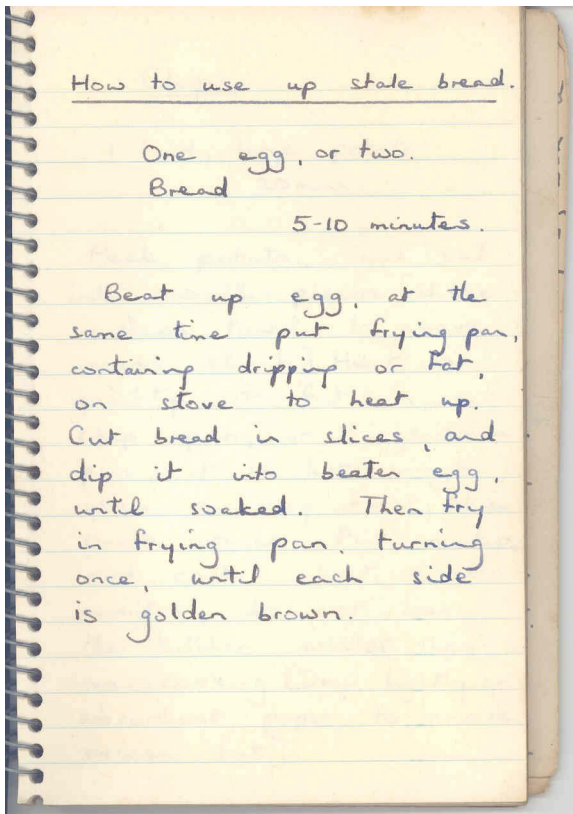 How to use up stale bread.
One egg, or two.
Bread
5-10 minutes.
Beat up egg, at the
same time put frying pan,
containing dripping or fat,
on stove to heat up.
Cut bread in slices, and
dip it into beaten egg,
until soaked. Then fry
in frying pan, turning
once, until each side
is golden brown.